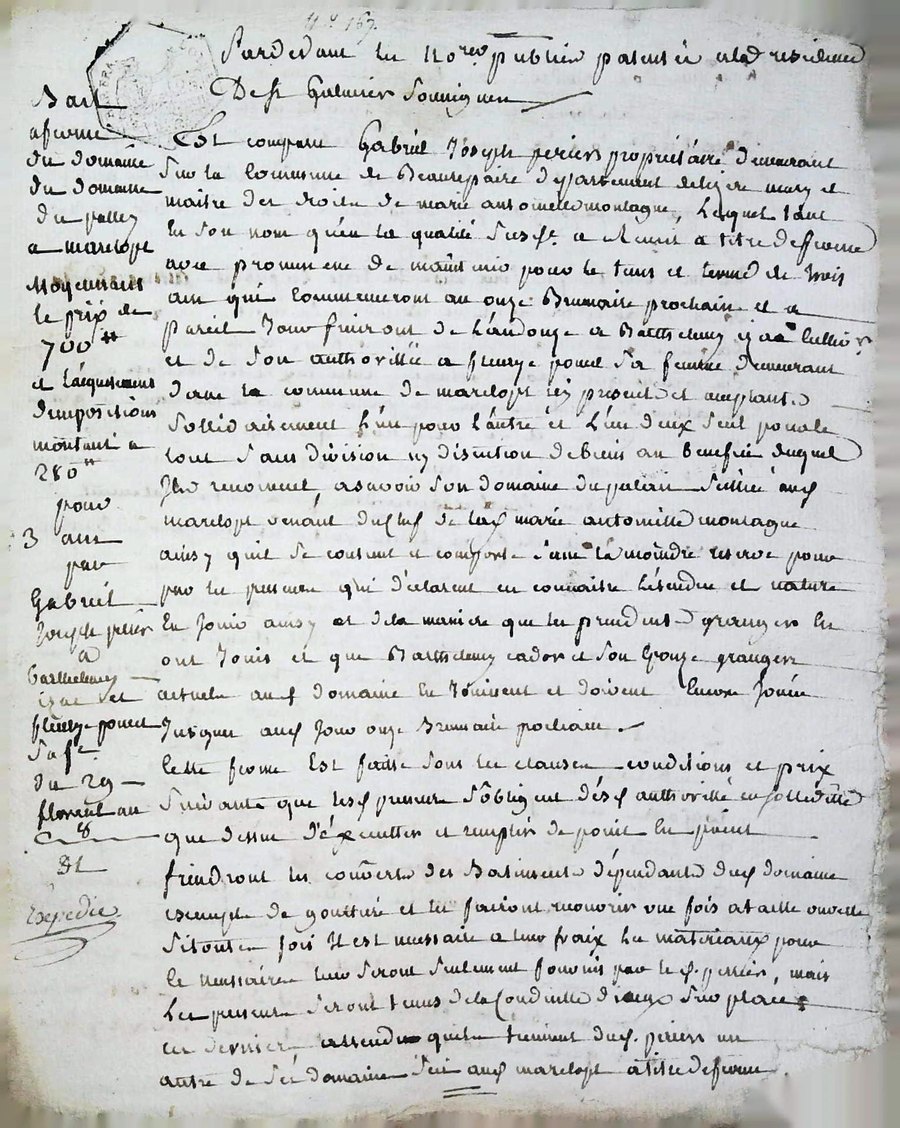 Pardevant les no.res publics patentés a la residence
De st Galmier soussignés
Bail
aferme
du domaine
du domaine
du palley
a marclopt
Moyennant
le prix de
700 tt
et l'acquittement
d'impositions
montant a
280 tt
pour
3 ans
par
Gabriel
Joseph perier
a
barthelemy
et
fleurye poncet
Sa fe.
du 29
floreal an
8
Expedié
Est comparu Gabriel Joseph perier propriétaire demeurant
Sur la Commune de Beaurepaire département de lizere mary et
maitre des droits de marie antoinette montagne, Lequel tant
En Son nom qu'en la qualité Susde. a Remit a titre de ferme
avec promesse de maintenir pour le tems et terme de trois
ans qui Commenceront au onze Brumaire prochain et a
pareil Jour finiront de Landouze a Barthelemy
et de Son authorittée a fleurye poncet Sa femme demeurant
dans la commune de marclopt icy presents et acceptants
Sollidairement L'un pour L'autre et L'un deux Seul pour le
tout Sans division ny discution de biens au benefice duquel
Ils renoncent, asavoir Son domaine du Scittué aud.
marclopt venant du chef de lad. marie antoinette montagne
ainsy quil Se contient et comporte Sans la moindre reserve pour
par les preneurs qui déclarent en connaitre L'étendue et nature
En Jouir ainsy et de la maniere que les précédents grangers En
ont Jouis et que Barthelemy cador et Son Gonze grangers
actuels aud. domaine En Jouissent et doivent Encore Jouir
Jusques aud. Jour onze Brumaire prochain.
Cette ferme Est faitte Sous les clauses conditions et prix
Suivants que lesd. preneurs S'obligent désd. authorité et sollidité
que dessus d'éxecutter et remplir de point En point
tiendront les couverts des Batiments dépendants dud. domaine
exempts de gouttiere et les feront recouvrir une fois a taille ouverte
Si toutes fois Il est necessaire a leur fraix Les materiaux pour
le necessaire leur Seront Seulement fournis par le d. perier, mais
Les preneurs Seront tenus de la Conduitte d'iceux Sur place
ces derniers attendu quils tiennent dud. perier un
autre de Ses domaines Scit. aud. marclopt a titre de ferme